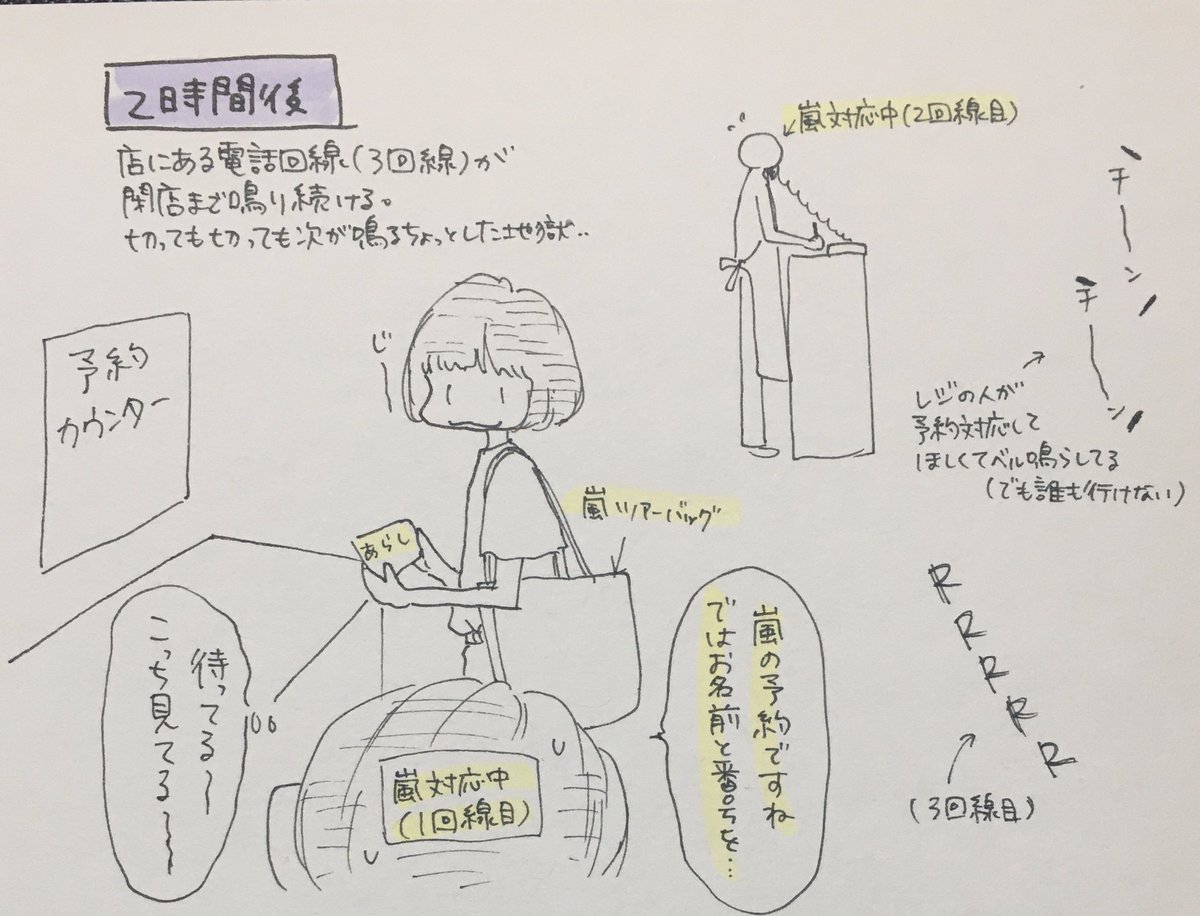 2時間後
店にある電話回線(3回線)が
閉店まで鳴り続ける。
切っても切っても次が鳴るちょっとした地獄..
嵐対応中(2回線目)
チーン
チーン
レジの人が
予約対応して
ほしくてベル鳴らしてる
(でも誰も行けない)
予約
カウンター
じー
嵐ツアーバッグ
あらし
嵐の予約ですね
ではお名前と番号を…
待ってる〜
こっち見てる〜
嵐対応中
(1回線目)
RRRRR
(3回線目)